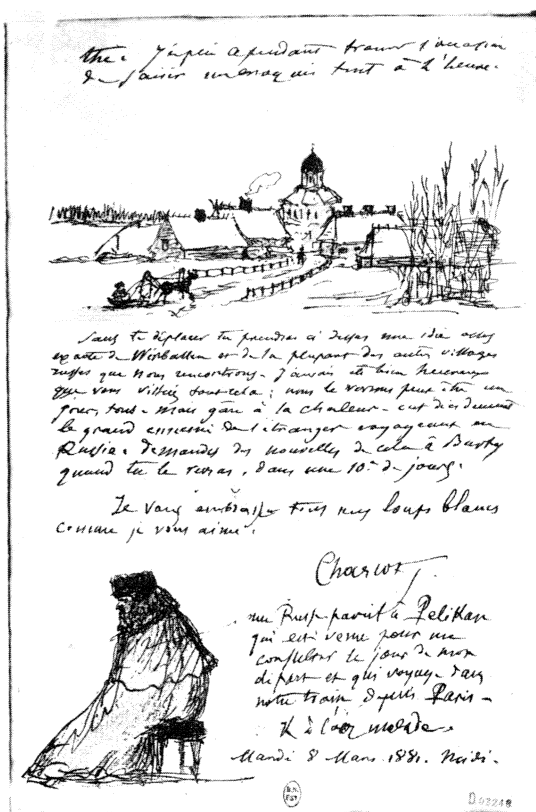 thé. J'espère cependant trouver l'occasion
de saisir un croquis tout à l'heure.
Sans te déplacer tu prendras ci dessus une idée assez
exacte de Wirballen et de la plupart des autres villages
russes que nous rencontrons. J'aurais été bien heureux
que vous visitiez tout cela ; nous le verrons peut être un
jour, tous. Mais gare à la chaleur. c'est décidément
le grand ennemi de l'étranger voyageant en
Russie. demandes des nouvelles de cela à Barty
quand tu le verras, dans une 10e de jours.
Je vous embrasse tous mes loups blancs
comme je vous aime.
Charlot.
un Russe pareil à Pelikan
qui est venu pour me
consulter le jour de mon
départ et qui voyage dans
notre train depuis Paris -
malade.
Mardi 8 Mars. 1881. Midi.
B.N.
EST.